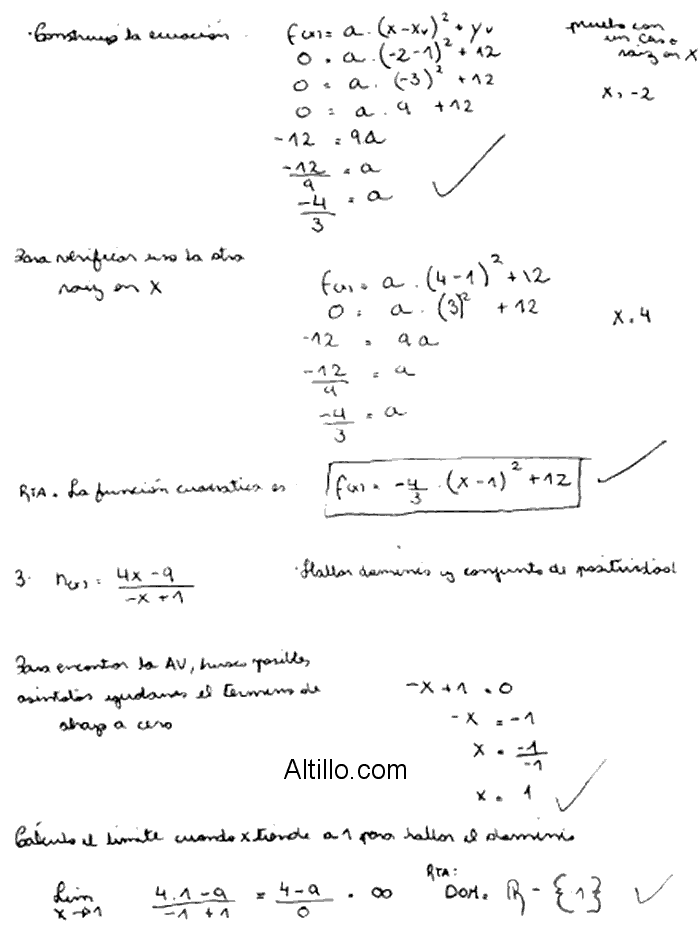 · Construyo la ecuación f(x) = a · (x - xv)² + yv
pruebo con
un caso
raiz en X
0 = a · (-2-1)² + 12
0 = a · (-3)² + 12
x = -2
0 = a · 9 + 12
-12 = 9a
-12/9 = a
-4/3 = a
Para verificar uso la otra
raiz en X
f(x) = a · (4-1)² + 12
0 = a · (3)² + 12
x = 4
-12 = 9a
-12/9 = a
-4/3 = a
RTA. La función cuadratica es f(x) = -4/3 · (x-1)² + 12
3. n(x) = 4x-9/-x+1 · Hallar dominio y conjunto de positividad
Para encontrar la AV, busco posibles
asintotas igualamos el termino de
abajo a cero
-x+1 = 0
-x = -1
x = -1/-1
x = 1
Altillo.com
Calculo el limite cuando x tiende a 1 para hallar el dominio
Lim x→1 4.1-9/-1+1 = 4-9/0 = ∞
RTA:
DOM = R - {1}